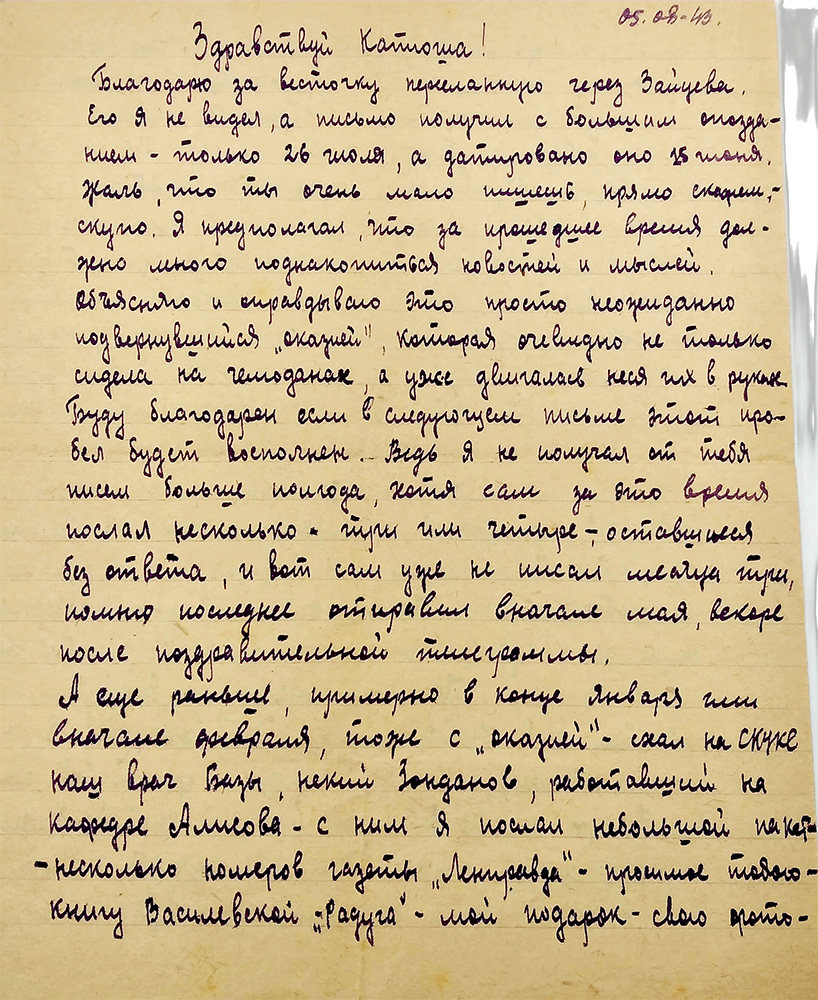 05.08-43.
Здравствуй Катюша!
Благодарю за весточку пересланную через Зайцева.
Его я не видел, а письмо получил с большим опозда-
нием - только 26 июля, а датировано оно 15 июня.
Жаль, что ты очень мало пишешь, прямо скажем,-
скупо. Я предполагал, что за прошедшее время дол-
жно много поднакопиться новостей и мыслей.
Объясняю и оправдываю это просто неожиданно
подвернувшийся „оказией", которая очевидно не только
сидела на чемоданах, а уже двигалась неся их в руках
Буду благодарен если в следующем письме этот про-
бел будет восполнен. Ведь я не получал от тебя
писем больше полгода, хотя сам за это время
послал несколько - три или четыре -, оставшиеся
без ответа, и вот сам уже не писал месяца три,
помню последнее отправил вначале мая, вскоре
после поздравительной телеграммы.
А еще раньше, примерно в конце января или
вначале февраля, тоже с „оказией" - ехал на
наш врач Базы, некий Зонданов, работавший на
кафедре Алисова - с ним я послал небольшой пакет-
- несколько номеров газеты „Ленправда" - просимое тобою -
книгу Василевской - „Радуга" - мой подарок - свою фото-